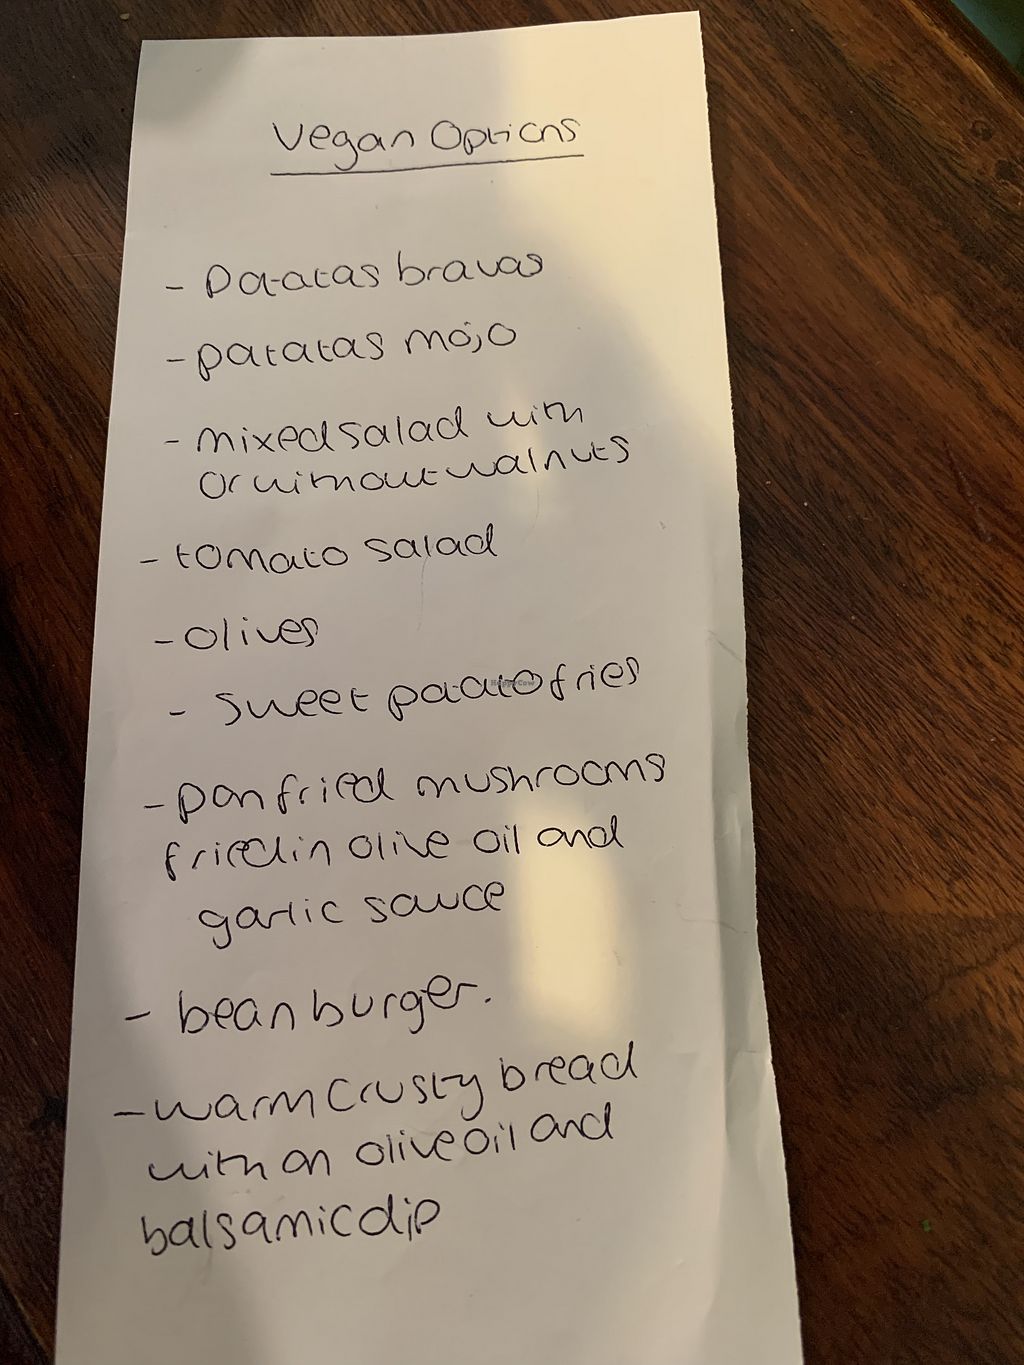 Vegan Options
- Patatas bravas
- patatas mojo
- mixed salad with
or without walnuts
- tomato salad
- olives
- sweet potato fries
HappyCow
- pan fried mushrooms
fried in olive oil and
garlic sauce
- bean burger.
- warm crusty bread
with an olive oil and
balsamic dip